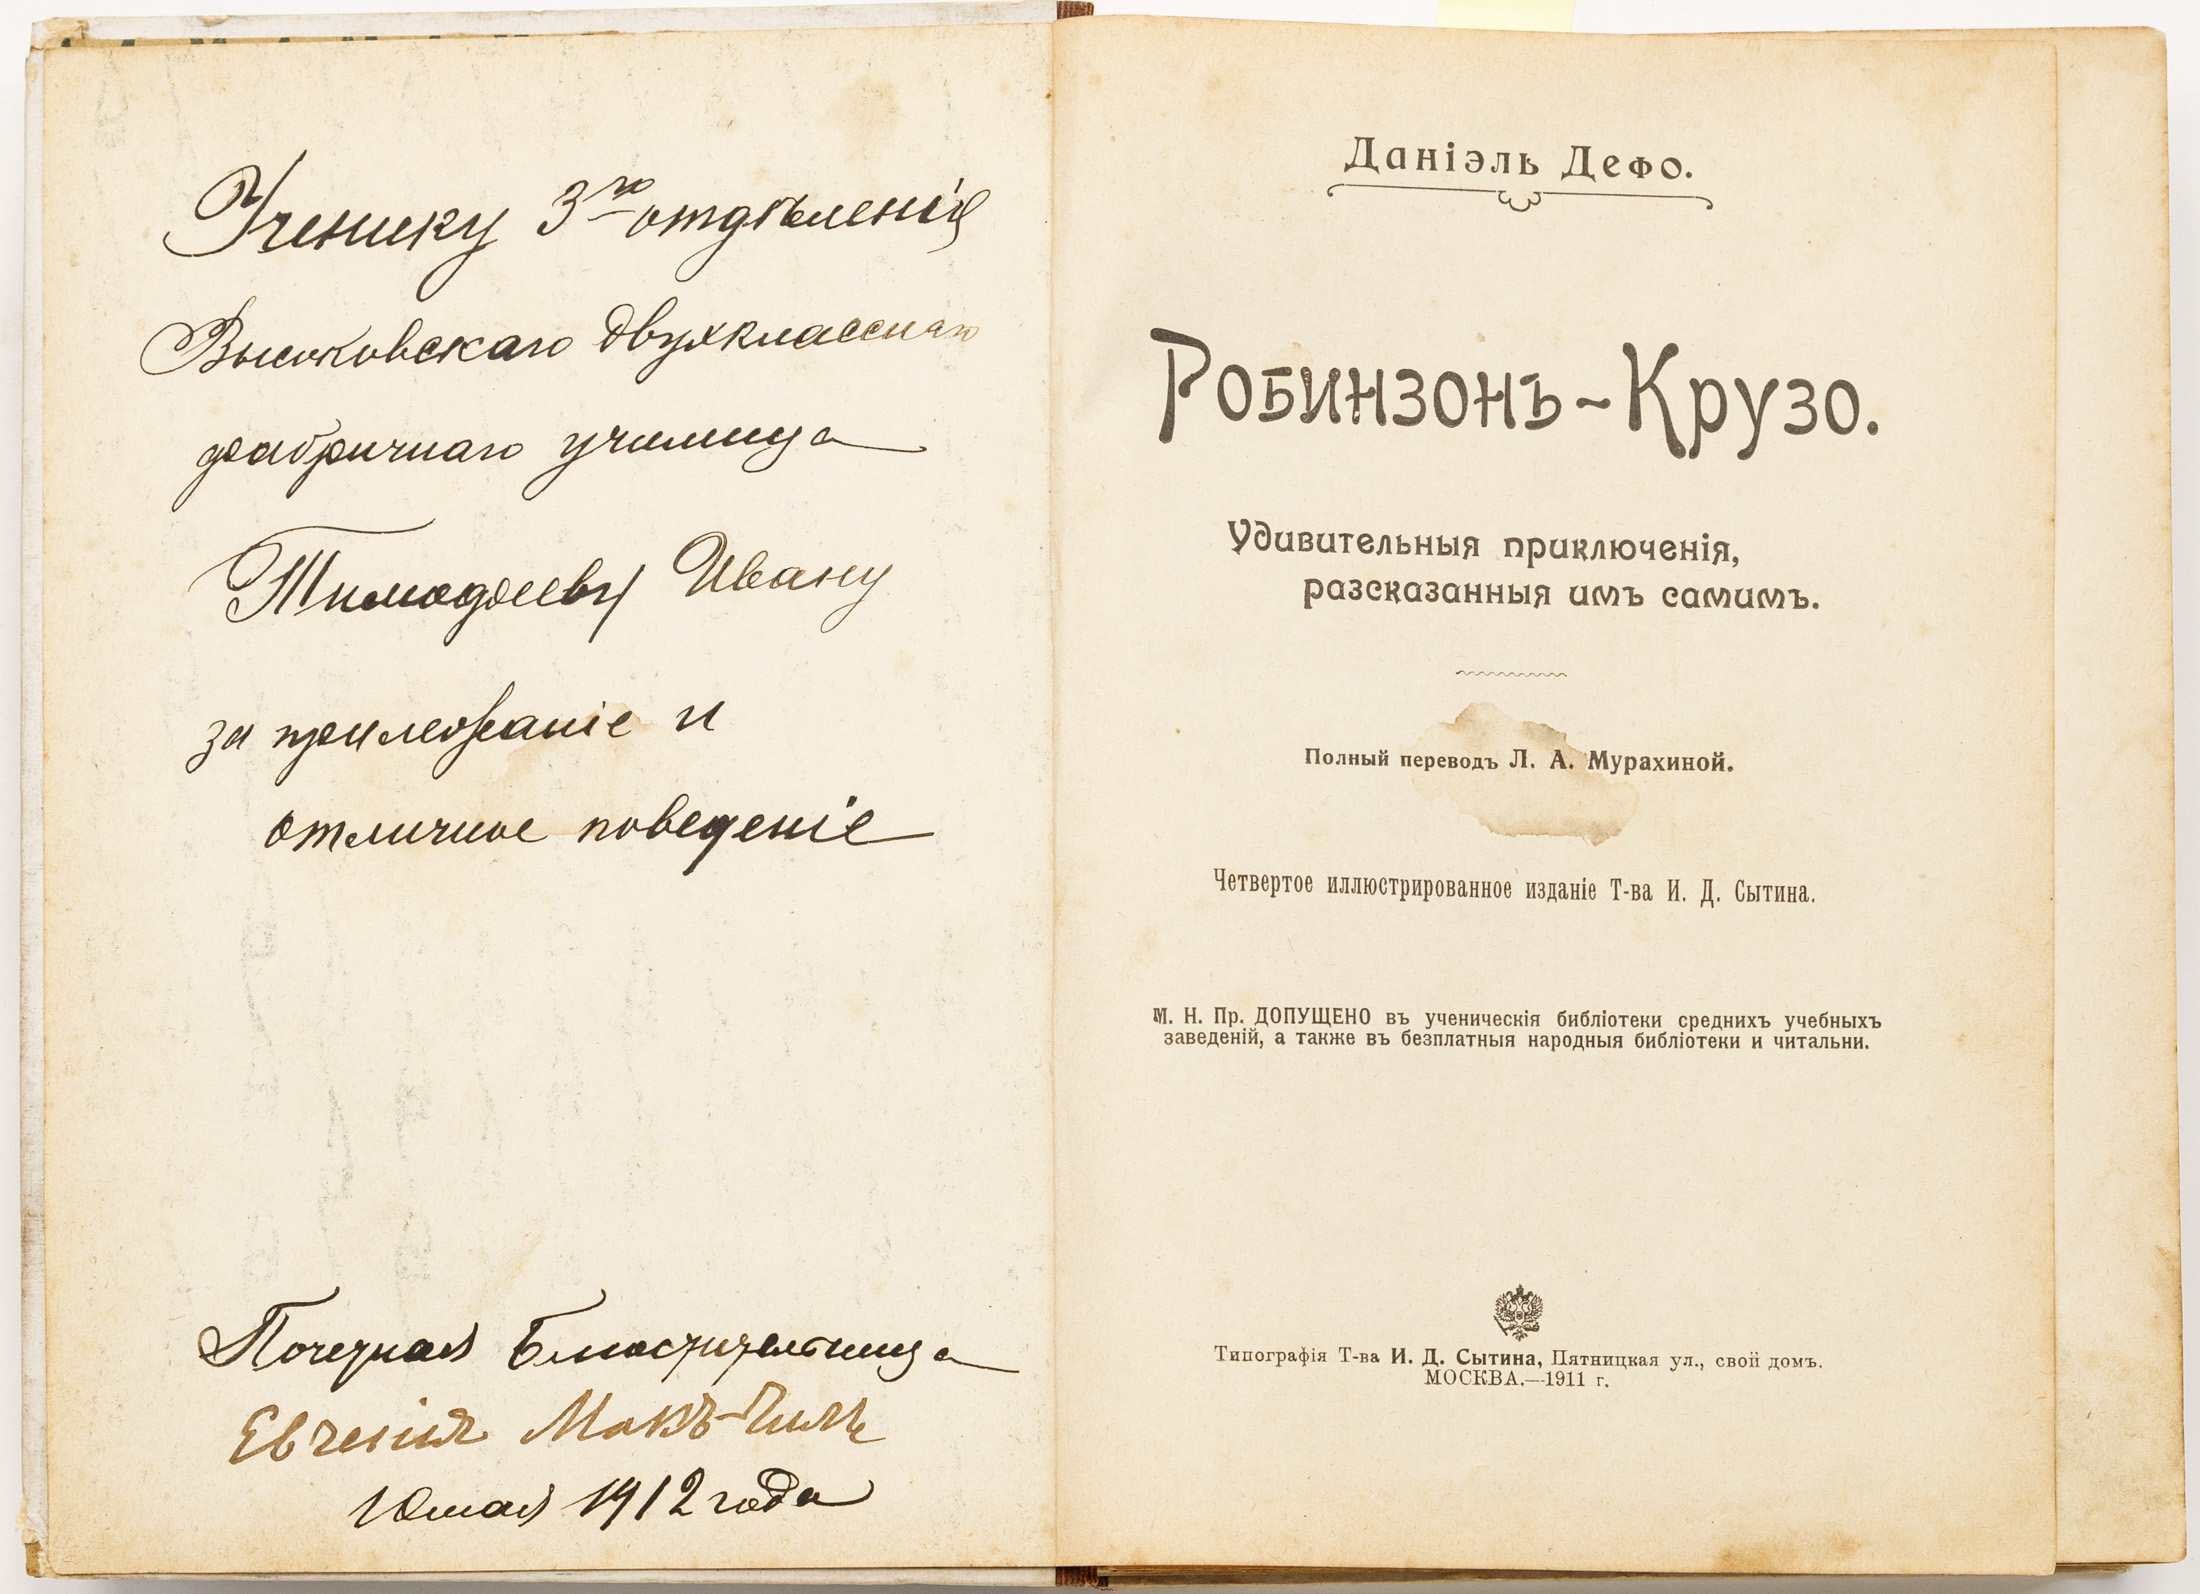 Ученику 3го отдѣленія
Высоковскаго двухкласснаго
фабричнаго училища
Тимофееву Ивану
за прилежаніе и
отличное поведеніе
Почетная Блюстительница
Евгенія Макъ-Гиль
10 мая 1912 года
Даніэль Дефо.
Робинзонъ-Крузо.
Удивительныя приключенія,
разсказанныя имъ самимъ.
Полный переводъ Л. А. Мурахиной.
Четвертое иллюстрированное изданіе Т-ва И. Д. Сытина.
М. Н. Пр. ДОПУЩЕНО въ ученическія библіотеки среднихъ учебныхъ
заведеній, а также въ безплатныя народныя библіотеки и читальни.
Типографія Т-ва И. Д. Сытина, Пятницкая ул., свой домъ.
МОСКВА.—1911 г.